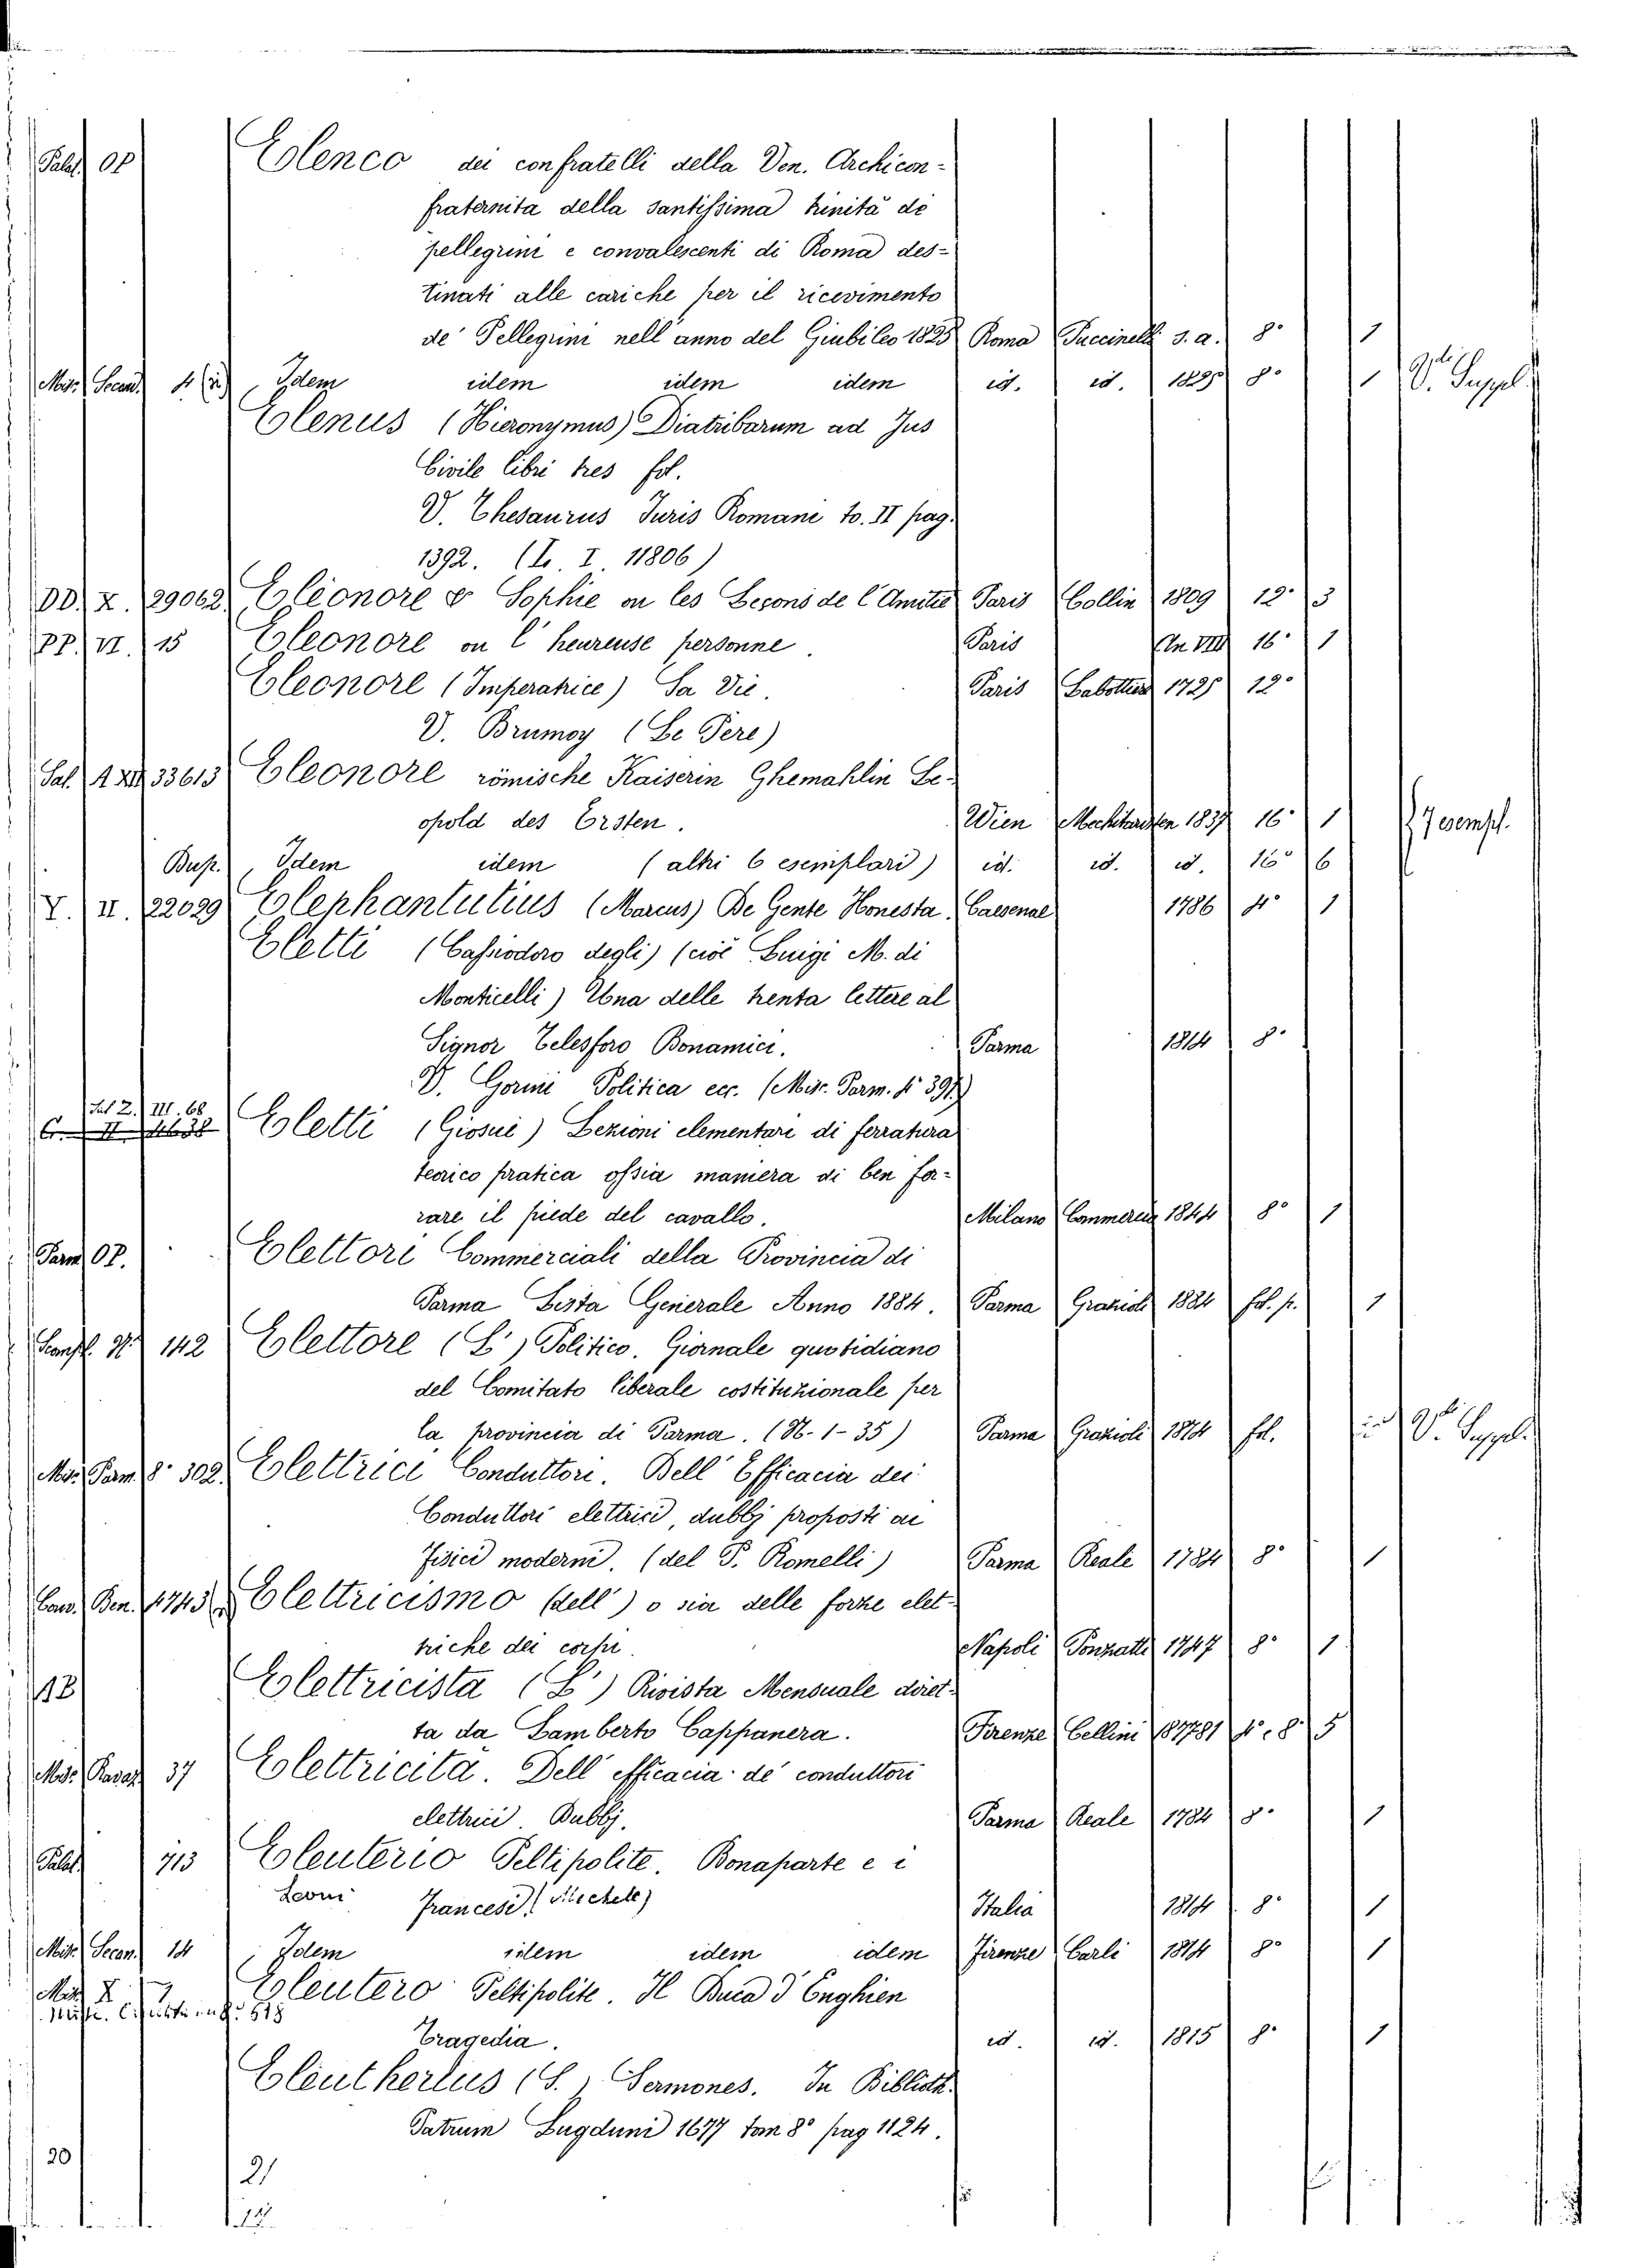 Palat. OP Elenco dei confratelli della Ven. Archicon-
fraternita della santissima trinità de
pellegrini e convalescenti di Roma des-
tinati alle cariche per il ricevimento
de' Pellegrini nell'anno del Giubileo 1825 Roma Puccinelli s. a. 8° 1
Misc. Idem idem idem idem id. id. 1825 8° 1 V. Suppl.
Elenus (Hieronymus) Diatribarum ad Jus
Civile libri tres fol.
V. Thesaurus Juris Romani to. II pag.
1392. (I. I. 11806)
DD. X. 29062 Eléonore & Sophie ou les Leçons de l'Amitié Paris Collin 1809 12° 3
PP. VI. 15 Eleonore ou l'heureuse personne. Paris An VIII 16° 1
Eleonore (Imperatrice) Sa Vie. Paris Labottiere 1725 12°
V. Brumoy (Le Pere)
Sal. A XII 33613 Eleonore römische Kaiserin Ghemahlin Le-
opold des Ersten. Wien Mechitaristen 1837 16° 1 7 esempl.
Bup. Idem idem (altri 6 esemplari) id. id. id. 16° 6
Y. II. 22029 Elephantutius (Marcus) De Gente Honesta Caesenae 1786 4° 1
Eletti (Cassiodoro degli) (cioè Luigi M. di
Monticelli) Una delle trenta lettere al
Signor Telesforo Bonamici. Parma 1814 8°
V. Gorini Politica ecc. (Misc. Parm. 4° 391)
Sal. Z. III. 68
Eletti (Giosuè) Lezioni elementari di ferratura
teorico pratica ossia maniera di ben fer-
rare il piede del cavallo. Milano Commercio 1844 8° 1
Parm. OP. Elettori Commerciali della Provincia di
Parma Lista Generale Anno 1884. Parma Grazioli 1884 fol. p. 1
142 Elettore (L') Politico. Giornale quotidiano
del Comitato liberale costituzionale per
la provincia di Parma. (N. 1-35) Parma Grazioli 1874 fol. V. Suppl.
Misc. Parm. 8° 302. Elettrici Conduttori. Dell'Efficacia dei
Conduttori elettrici, dubbj proposti ai
Fisici moderni. (del P. Romelli) Parma Reale 1784 8° 1
Elettricismo (dell') o sia delle forze elet-
triche dei corpi. Napoli Ponzatti 1747 8° 1
Elettricista (L') Rivista Mensuale diret-
ta da Lamberto Cappanera. Firenze Cellini 1877 81 4° e 8° 5
37 Elettricità. Dell'efficacia de' conduttori
elettrici. Dubbj. Parma Reale 1784 8° 1
Palat. 713 Eleuterio Peltipolite. Bonaparte e i
Leoni Francesi (Michele) Italia 1814 8° 1
Misc. 14 Idem idem idem idem Firenze Carli 1814 8° 1
Eleutero Peltipolite. Il Duca d'Enghien
Tragedia. id. id. 1815 8° 1
Eleutherius (S.) Sermones. In Biblioth.
Patrum Lugduni 1677 tom 8° pag 1124.
20 21